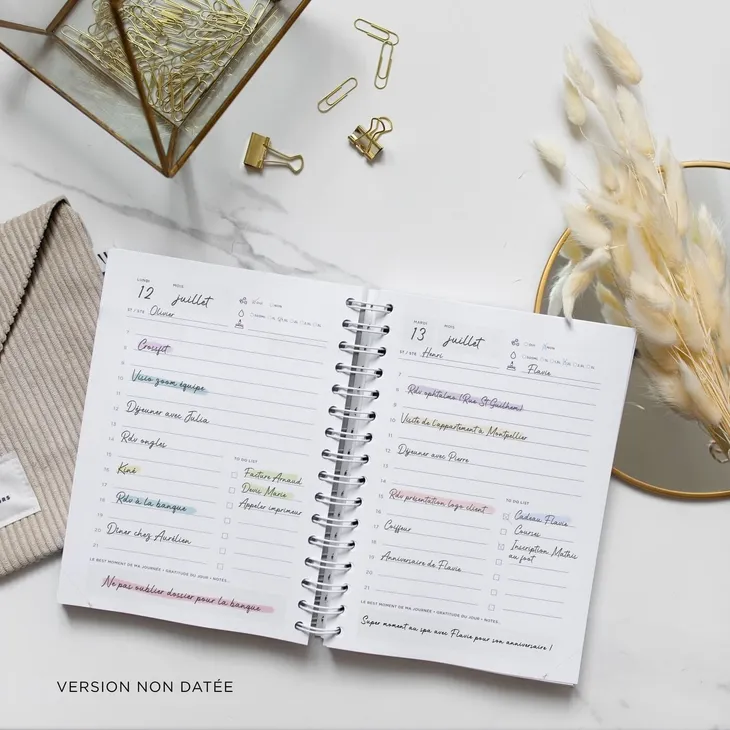 LUNDI
MOIS
12 juillet
ST / STE Olivier
7
8 Crossfit
9
10 Visio zoom équipe
11
12 Déjeuner avec Julia
13
14 Rdv ongles
15
16 Kiné
17
18 Rdv à la banque
19
20 Dîner chez Aurélien
21
TO DO LIST
Facture Arnaud
Devis Marie
Appeler imprimeur
LE BEST MOMENT DE MA JOURNÉE • GRATITUDE DU JOUR • NOTES...
Ne pas oublier dossier pour la banque
MARDI
MOIS
13 juillet
ST / STE Henri
Flavie
7
8 Rdv ophtalmo (Rue St Guilhem)
9
10 Visite de l'appartement à Montpellier
11
12 Déjeuner avec Pierre
13
14
15 Rdv présentation logo client
16
17 Coiffeur
18
19 Anniversaire de Flavie
20
21
TO DO LIST
Cadeau Flavie
Courses
Inscription Mathis
au foot
LE BEST MOMENT DE MA JOURNÉE • GRATITUDE DU JOUR • NOTES...
Super moment au spa avec Flavie pour son anniversaire !
VERSION NON DATÉE